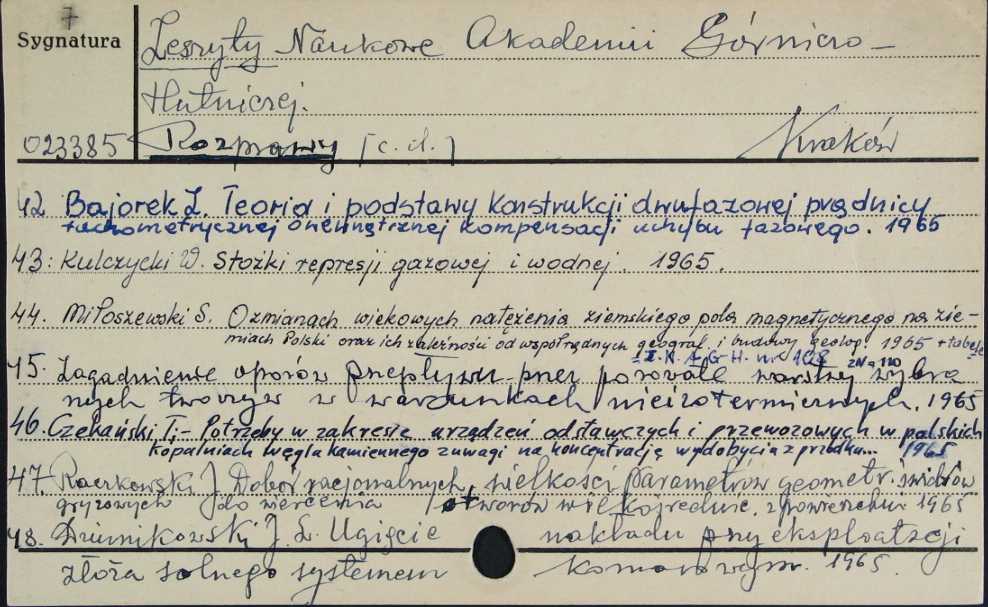 7
Sygnatura
Zeszyty Naukowe Akademii Górniczo-
Hutniczej.
023385 Rozprawy [c.d.] Kraków
42. Bajorek Z. Teoria i podstawy konstrukcji dwufazowej prądnicy
tachometrycznej o wewnętrznej kompensacji uchybu fazowego. 1965
43: Kulczycki W. Stożki represji gazowej i wodnej. 1965.
44. Miłoszewski S. O zmianach wiekowych natężenia ziemskiego pola magnetycznego na zie-
miach Polski oraz ich zależności od współrzędnych geograf. i budowy geolog. 1965 + tabele
= Z.N.A.G.H. nr 108
ZN = 110
45. Zagadnienie oporów przepływu przez porowate warstwy wybra
nych tworzyw w warunkach nieizotermicznych. 1965
46. Czekański T.;- Potrzeby w zakresie urządzeń odstawczych i przewozowych w polskich
kopalniach węgla kamiennego z uwagi na koncentrację wydobycia z przodku... 1965
47. Raczkowski J. Dobór racjonalnych wielkości parametrów geometr. świdrów
gryzowych do wiercenia otworów wielkośrednic. z powierzchni 1965
48. J. Z. Ugięcie nakładu przy eksploatacji
złoża solnego systemem komorowym. 1965.